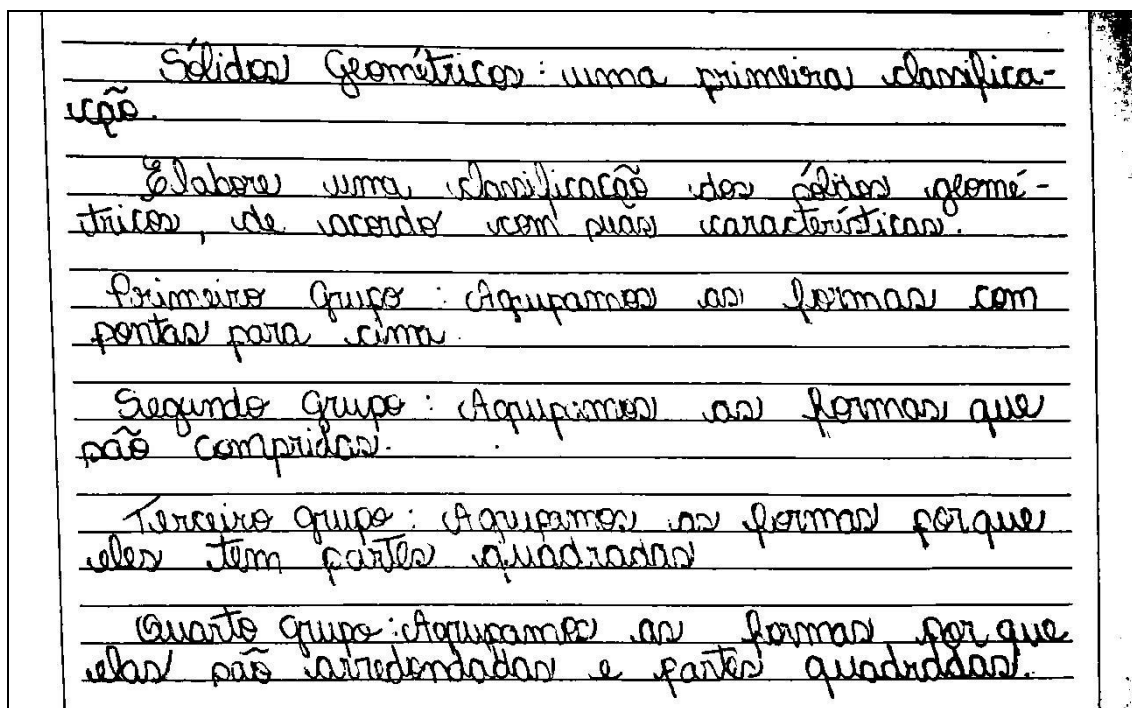 Sólidos Geométricos: uma primeira classifica-
ção.
Elabore uma classificação dos sólidos geomé-
tricos, de acordo com suas características.
Primeiro Grupo: Agrupamos as formas com
pontas para cima.
Segundo Grupo: Agrupimos as formas que
são compridas.
Terceiro grupo: Agrupamos as formas porque
eles tem partes quadradas
Quarto grupo: Agrupamos as formas por que
elas são arredondadas e partes quadradas.